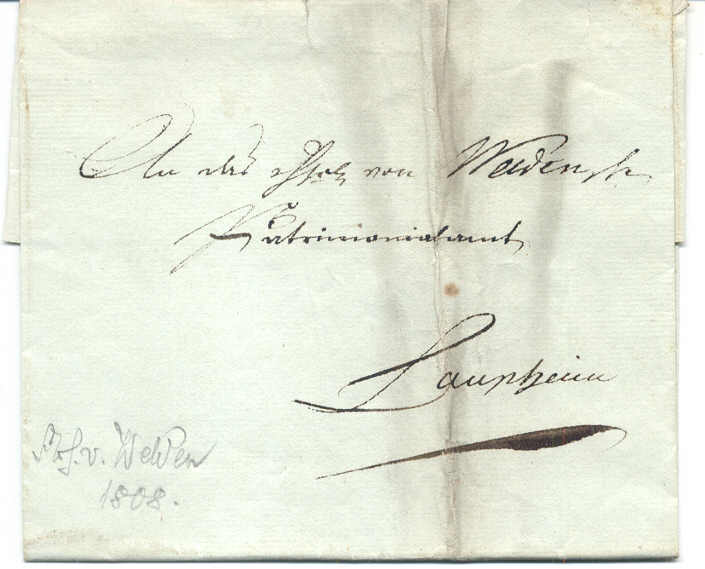 An das Frhrl. von Weldensche
Patrimonialamt
Laupheim
Frh. v. Welden
1808.